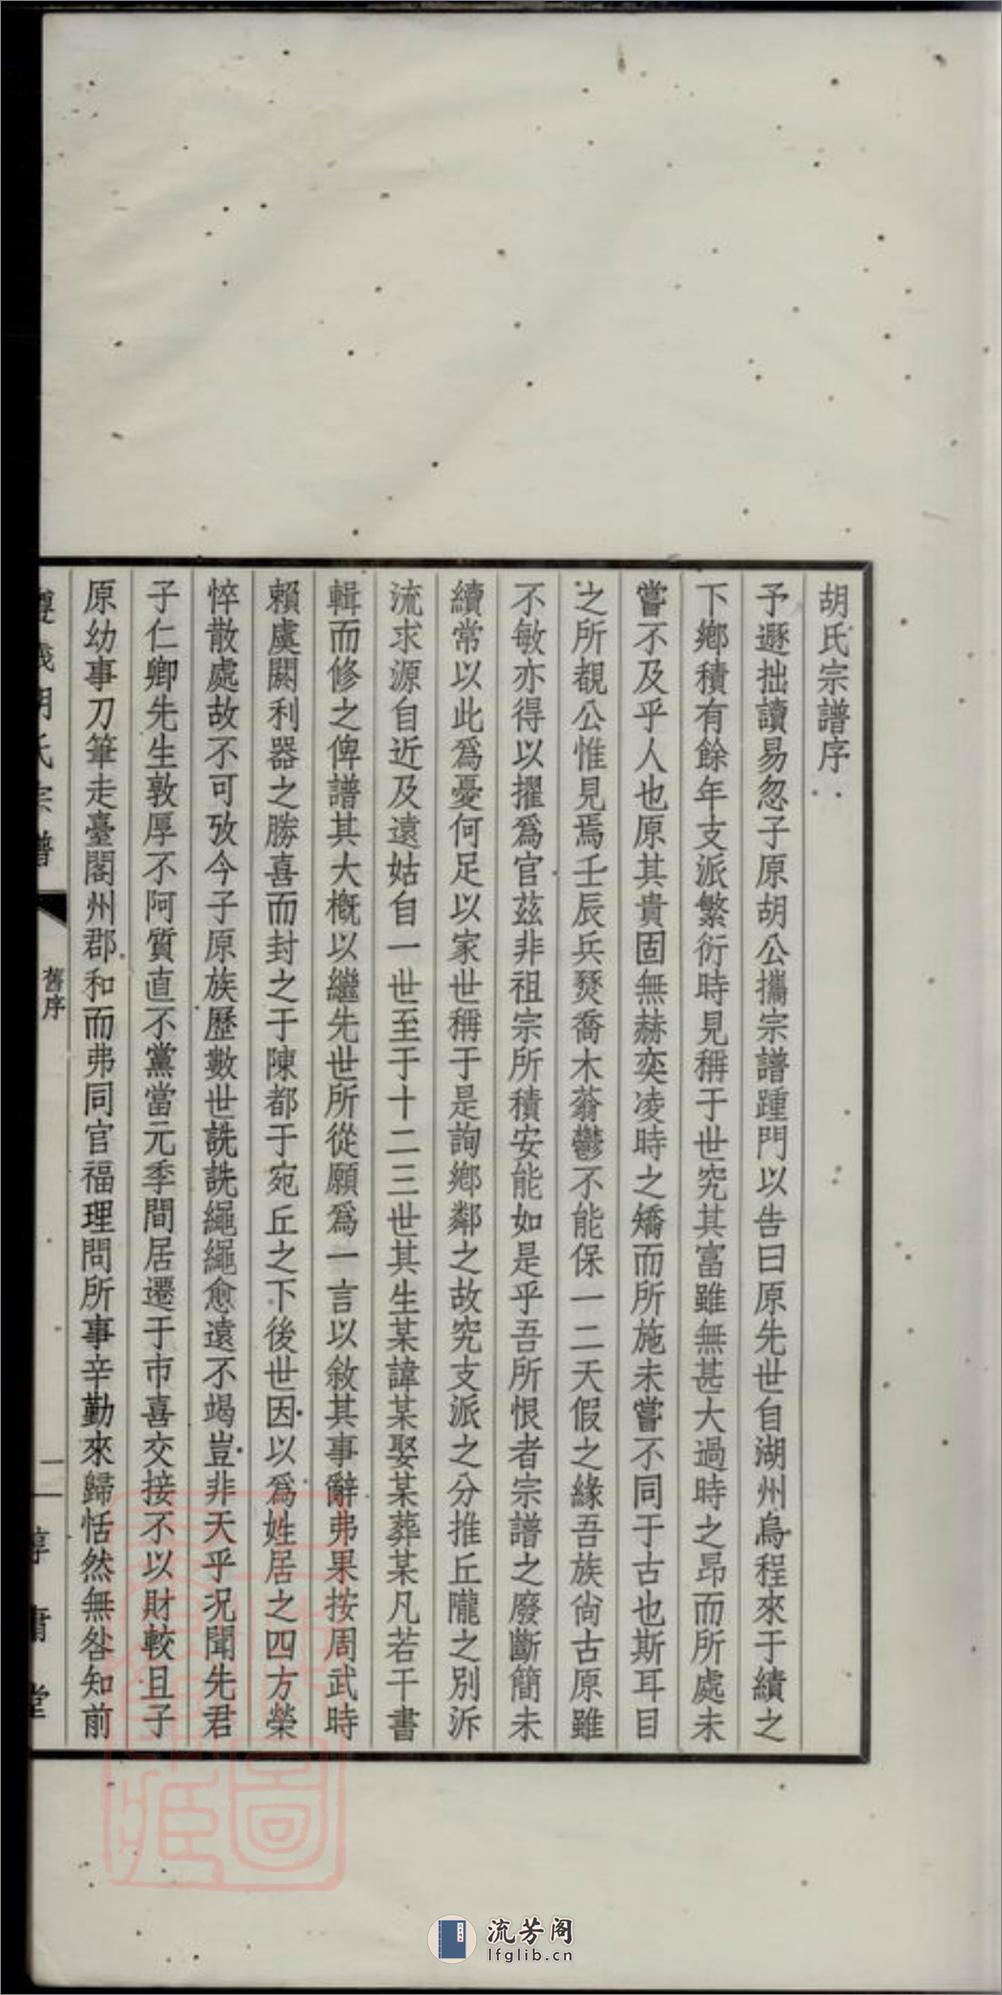 胡氏宗譜序
予遯拙讀易忽子原胡公攜宗譜踵門以告曰原先世自湖州烏程來于績之
下鄉積有餘年支派繁衍時見稱于世究其富雖無甚大過時之昂而所處未
嘗不及乎人也原其貴固無赫奕凌時之矯而所施未嘗不同于古也斯耳目
之所覩公惟見焉壬辰兵燹喬木蓊鬱不能保一二天假之緣吾族尙古原雖
不敏亦得以擢爲官茲非祖宗所積安能如是乎吾所恨者宗譜之廢斷簡未
續常以此爲憂何足以家世稱于是詢鄉鄰之故究支派之分推丘隴之別泝
流求源自近及遠姑自一世至于十二三世其生某諱某娶某葬某凡若干書
輯而修之俾譜其大槪以繼先世所從願爲一言以敘其事辭弗果按周武時
賴虞閼利器之勝喜而封之于陳都于宛丘之下後世因以爲姓居之四方榮
悴散處故不可攷今子原族歷數世詵詵繩繩愈遠不竭豈非天乎況聞先君
子仁卿先生敦厚不阿質直不黨當元季間居遷于市喜交接不以財較且子
原幼事刀筆走臺閣州郡和而弗同官福理問所事辛勤來歸恬然無咎知前
遵義胡氏宗譜
舊序
一
惇庸堂
流芳閣
lfglib.cn